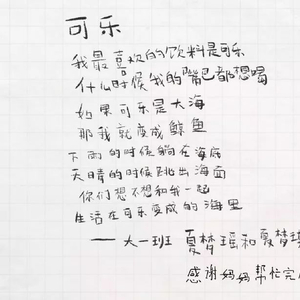 可乐
我最喜欢的饮料是可乐
什么时候我的嘴巴都想喝
如果可乐是大海
那我就变成鲸鱼
下雨的时候躺在海底
天晴的时候跳出海面
你们想不想和我一起
生活在可乐变成的海里
——大一班 夏梦瑶和夏梦
感谢妈妈帮忙完